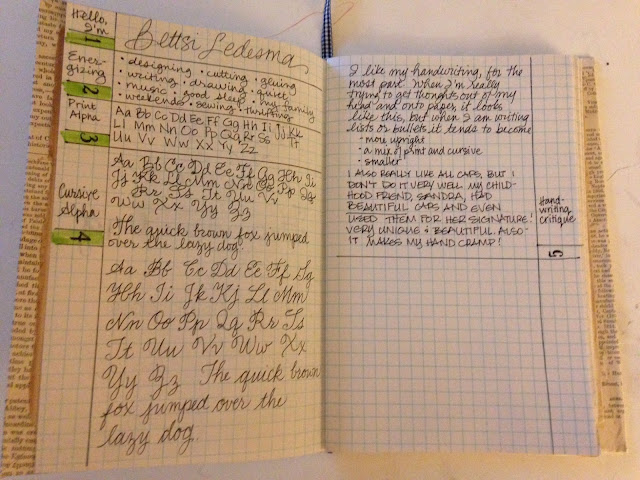 Hello,
I'm
1
Bettsi Ledesma
Ener-
gizing
2
• designing • cutting • gluing
• writing • drawing • quiet
• music • good sleep • my family
• weekends • sewing • thrifting
Print
Alpha
3
Aa Bb Cc Dd Ee Ff Gg Hh Ii Jj Kk
Ll Mm Nn Oo Pp Qq Rr Ss Tt
Uu Vv Ww Xx Yy Zz
Cursive
Alpha
4
Aa Bb Cc Dd Ee Ff Gg Hh Ii
Jj Kk Ll Mm Nn Oo Pp Qq
Rr Ss Tt Uu Vv
Ww Xx Yy Zz
The quick brown fox jumped
over the lazy dog.
Aa Bb Cc Dd Ee Ff Gg
Hh Ii Jk Kj Ll Mm
Nn Oo Pp Qq Rr Ss
Tt Uu Vv Ww Xx
Yy Zz The quick brown
fox jumped over the
lazy dog.
I like my handwriting, for the
most part. When I'm really
trying to get thoughts out of my
head and onto paper, it looks
like this, but when I am writing
lists or bullets it tends to become
• more upright
• a mix of print and cursive
• smaller
I ALSO REALLY LIKE ALL CAPS, BUT I
DON'T DO IT VERY WELL. MY CHILD-
HOOD FRIEND, SANDRA, HAD
BEAUTIFUL CAPS AND EVEN
USED THEM FOR HER SIGNATURE!
VERY UNIQUE & BEAUTIFUL. ALSO-
IT MAKES MY HAND CRAMP!
Hand-
writing
critique
5